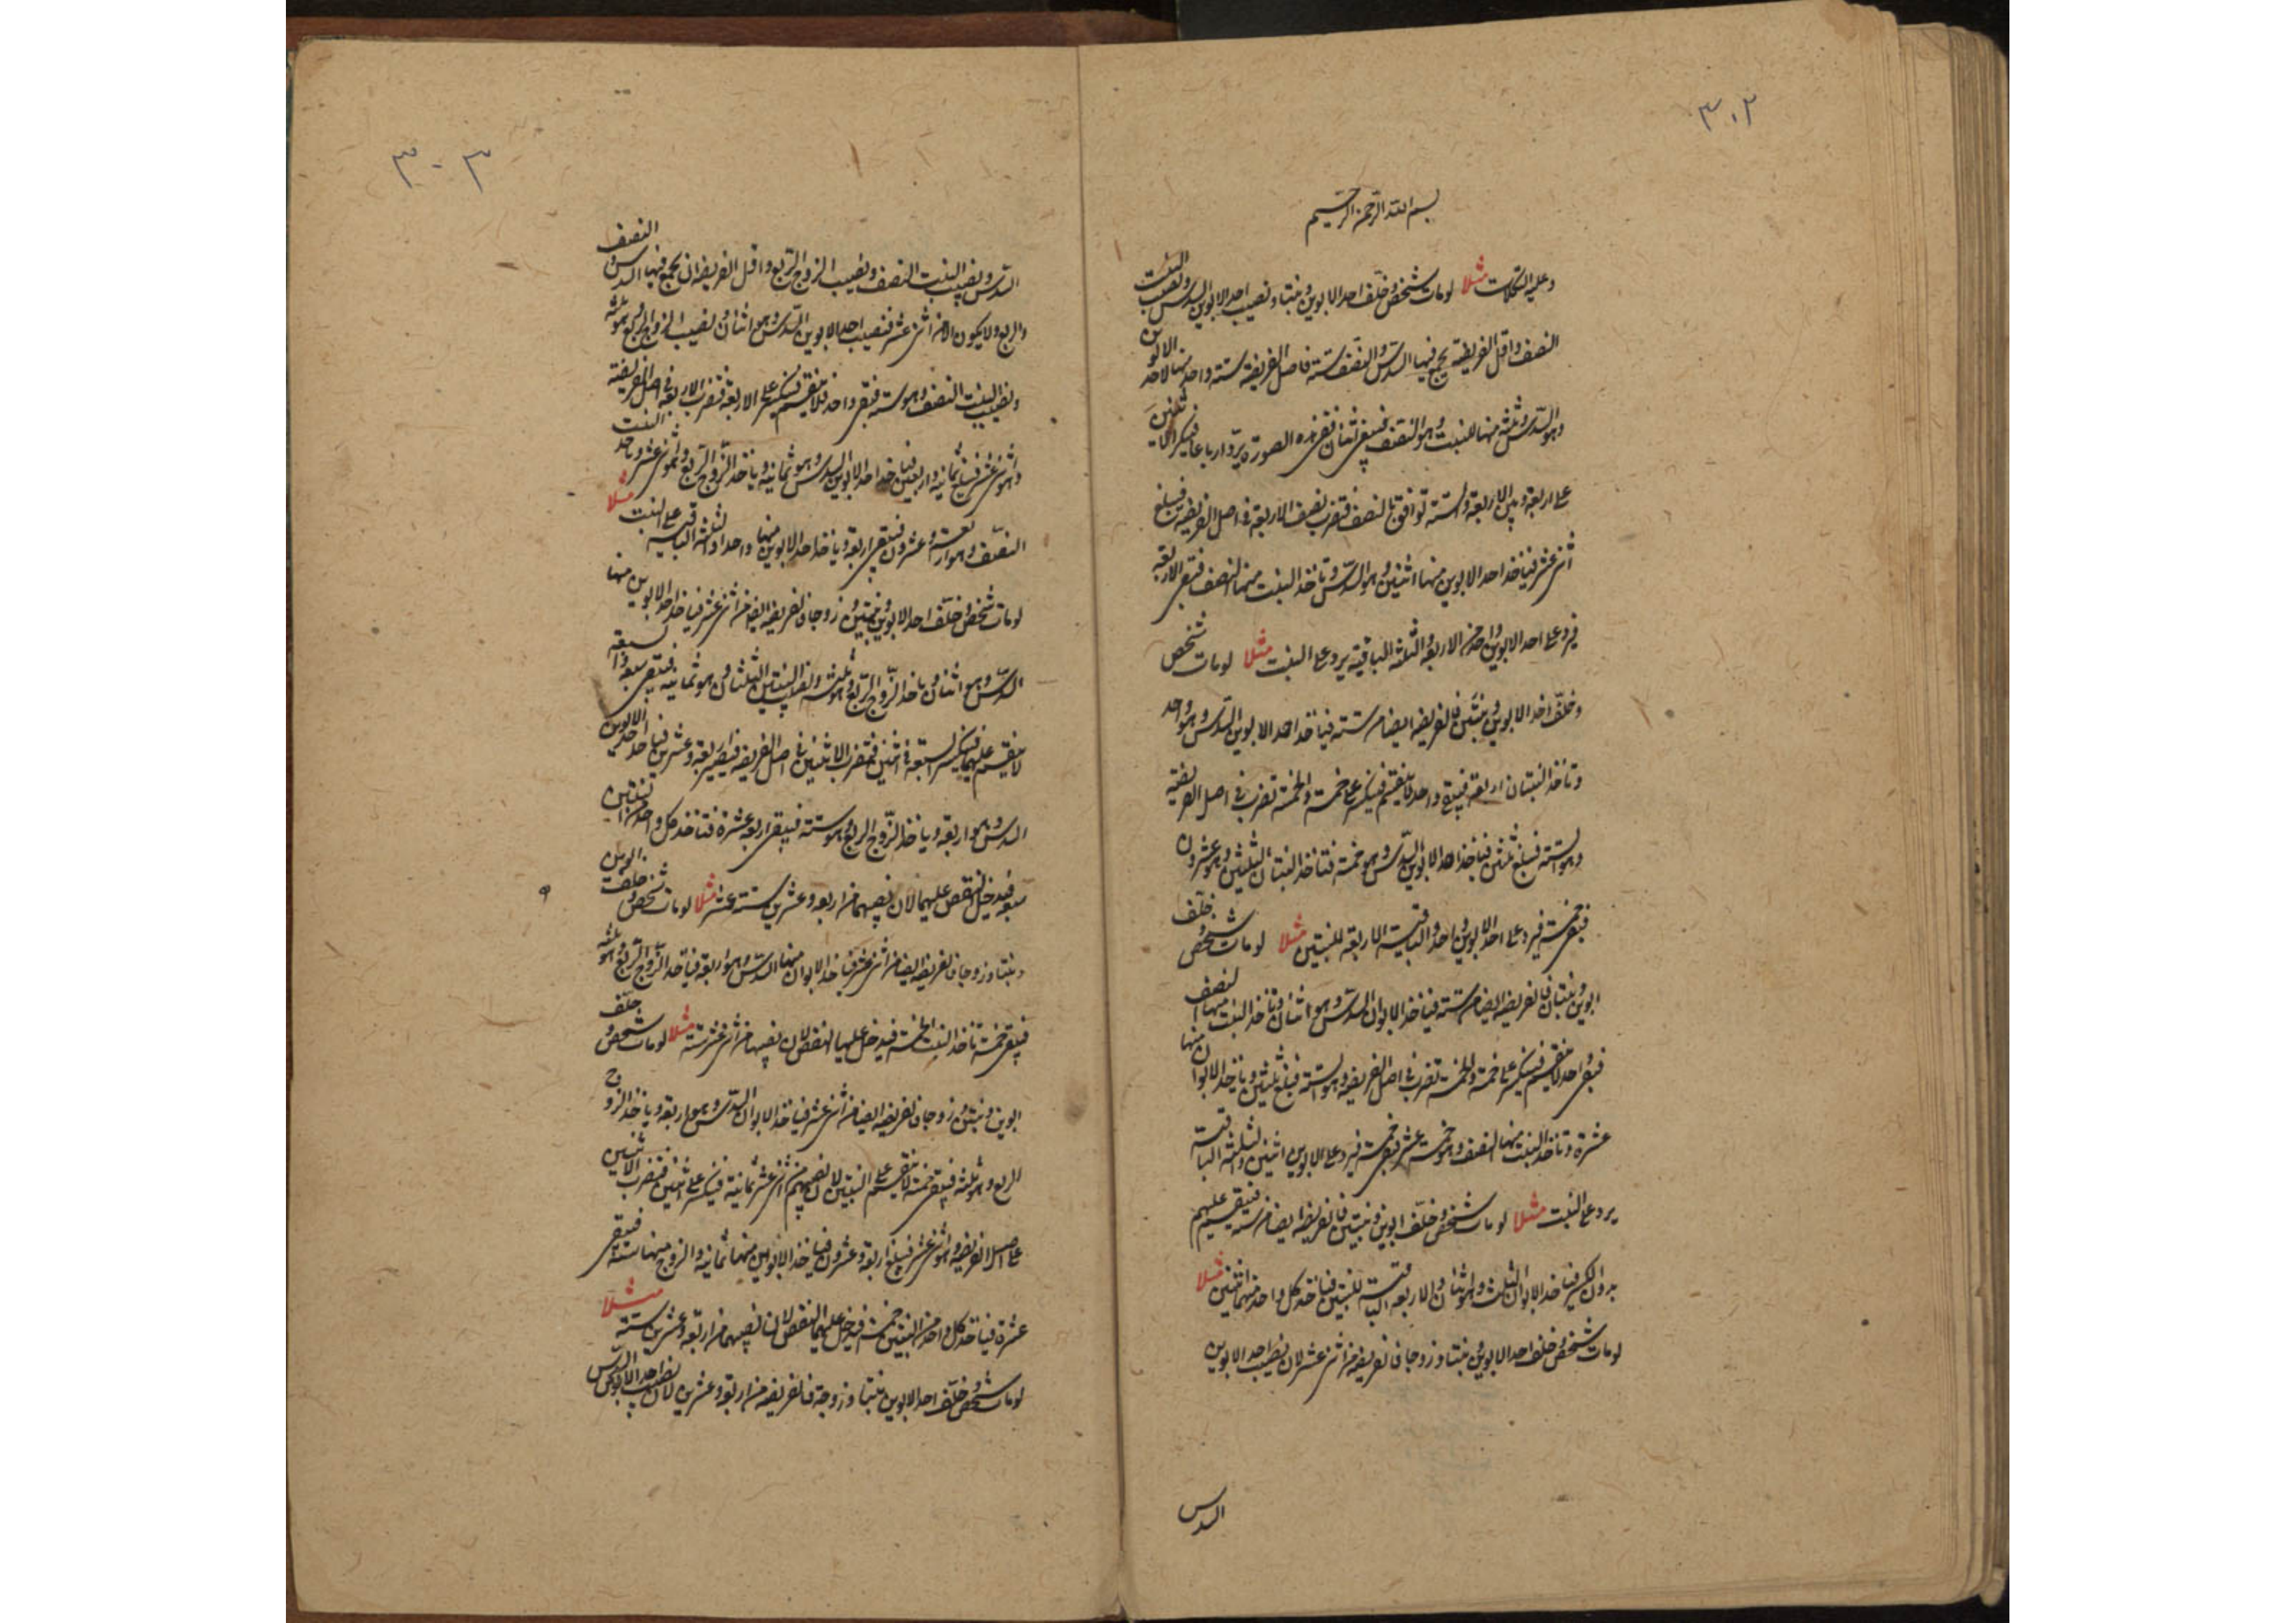 ٣٠٢
بسم الله الرحمن الرحيم
وعليه التكلان مثلا لو مات شخص وخلف احد الابوين وبنتا ونصيب احد الابوين السدس ونصيب البنت
النصف واقل الفريضة يجمع فيها السدس والنصف ستة فاصل الفريضة ستة واحد منها لاحد الابوين
وهو السدس وثلثة منها للبنت وهو النصف فيبقى اثنان ففى هذه الصورة يرد ارباعا فينكسر الاثنين
على اربعة وبين الاربعة والستة توافق بالنصف فتضرب نصف الاربعة فى اصل الفريضة فيبلغ
اثنى عشر فياخذ احد الابوين منها اثنين وهو السدس وتاخذ البنت منها النصف فتبقى الاربعة
فيرد على احد الابوين واحد من الاربعة والثلثة الباقية يرد على البنت مثلا لو مات شخص
وخلف احد الابوين وبنتين فالفريضة ايضا من ستة فياخذ احد الابوين السدس وهو واحد
وتاخذ البنتان اربعة فيبقى واحد لا ينقسم فينكسر على خمسة والخمسة تضرب فى اصل الفريضة
وهو الستة فيبلغ ثلثين فياخذ احد الابوين السدس وهو خمسة فتاخذ البنتان الثلثين وهو عشرون
فيبقى خمسة فيرد على احد الابوين واحد والباقية الاربعة للبنتين مثلا لو مات شخص وخلف
ابوين وبنتا فالفريضة ايضا من ستة فياخذ الابوان السدس وهو اثنان وتاخذ البنت منها النصف
فيبقى واحد لا ينقسم فينكسر على خمسة والخمسة تضرب فى اصل الفريضة وهو الستة فيبلغ ثلثين وياخذ الابوان منها
عشرة وتاخذ البنت منها النصف وهو خمسة عشر فيبقى خمسة فيرد على الابوين اثنين والثلثة الباقية
يرد على البنت مثلا لو مات شخص وخلف ابوين وبنتين فالفريضة ايضا من ستة فينقسم عليهم
بدون الكسر فياخذ الابوان الثلث وهو اثنان والاربعة الباقية للبنتين فياخذ كل واحد منهما اثنين مثلا
لو مات شخص وخلف احد الابوين وبنتا وزوجا فالفريضة من اثنى عشر لان نصيب احد الابوين
السدس
٣٠٣
السدس ونصيب البنت النصف ونصيب الزوج الربع واقل الفريضة ان يجمع فيها السدس والنصف
والربع ولا يكون الا من اثنى عشر فنصيب احد الابوين السدس وهو اثنان ونصيب الزوج الربع وهو ثلثة
ونصيب البنت النصف وهو ستة فيبقى واحد فلا ينقسم فينكسر على الاربعة فتضرب الاربعة فى اصل الفريضة
وهو اثنى عشر فيبلغ ثمانية واربعين فياخذ احد الابوين السدس وهو ثمانية وياخذ الزوج الربع وهو اثنى عشر وتاخذ البنت
النصف وهو اربعة وعشرون فيبقى اربعة وياخذ احد الابوين منها واحدا والثلثة الباقية على البنت مثلا
لو مات شخص وخلف احد الابوين وبنتين وزوجا فالفريضة ايضا من اثنى عشر فياخذ احد الابوين منها
السدس وهو اثنان وياخذ الزوج الربع وهو ثلثة ونصيب البنتين الثلثان وهو ثمانية فيبقى سبعة والسبعة
لا ينقسم عليهما فينكسر السبعة فى اثنين فتضرب الاثنين فى اصل الفريضة فيصير اربعة وعشرين فياخذ احد الابوين
السدس وهو اربعة وياخذ الزوج الربع وهو ستة فيبقى اربعة عشرة فتاخذ كل واحد من البنتين
سبعة فيدخل النقص عليهما لان نصيبهما من اربعة وعشرين ستة عشر مثلا لو مات شخص وخلف ابوين
وبنتا وزوجا فالفريضة ايضا من اثنى عشر فياخذ الابوان منها السدس وهو اربعة فياخذ الزوج الربع وهو ثلثة
فيبقى خمسة تاخذ البنت الخمسة فيدخل عليها النقص لان نصيبها من اثنى عشر ستة مثلا لو مات شخص وخلف
ابوين وبنتين وزوجا فالفريضة ايضا من اثنى عشر فياخذ الابوان السدس وهو اربعة وياخذ الزوج
الربع وهو ثلثة فيبقى خمسة لا ينقسم على البنتين لان نصيبهم من اثنى عشر ثمانية فينكسر على اثنين فتضرب الاثنين
على اصل الفريضة وهو اثنى عشر فيبلغ اربعة وعشرون فياخذ الابوين منها ثمانية والزوج منها ستة فيبقى
عشرة فياخذ كل واحد من البنتين خمسة فيدخل عليهما النقص لان نصيبهما من اربعة وعشرين ستة مثلا
لو مات شخص وخلف احد الابوين وبنتا وزوجة فالفريضة من اربعة وعشرين لان نصيب احد الابوين السدس